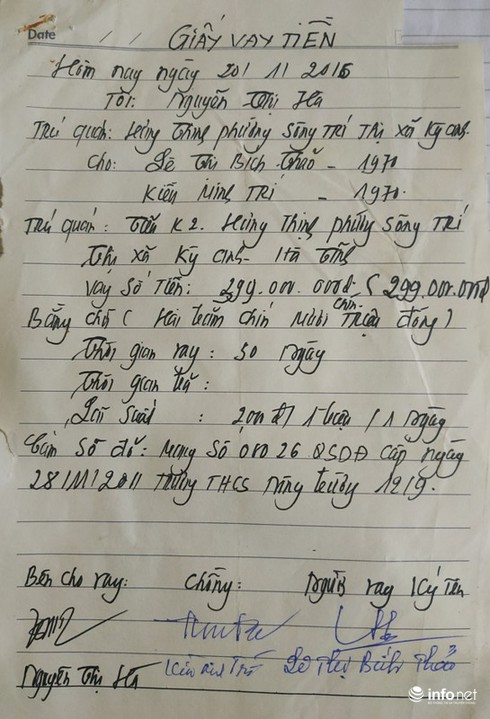 Date / / GIẤY VAY TIỀN
Hôm nay ngày 20/ 11/ 2015
Tôi: Nguyễn Thị Hà
Trú quán: Hưng Thịnh phường Sông Trí Thị xã Kỳ anh.
Cho: Lê Thị Bích Thảo - 1970
Kiều Minh Trí - 1970.
Trú quán: Tiểu K2. Hưng Thịnh phường Sông Trí
Thị xã Kỳ anh - Hà Tĩnh
Vay Số Tiền: 299.000.000đ - (299.000.000đ
Bằng chữ ( Hai trăm chín mươi chín Triệu đồng)
Thời gian vay: 30 ngày
Thời gian trả:
Lãi suất : 2000đ/ 1 triệu / 1 ngày
Cầm Sổ đỏ: Mang Số 00026 QSDĐ Cấp ngày
28/11/2011 Trường THCS Nông trường 12/9.
Bên cho vay: chồng: Người vay Ký Tên
Nguyễn Thị Hà Kiều Minh Trí Lê Thị Bích Thảo
infonet